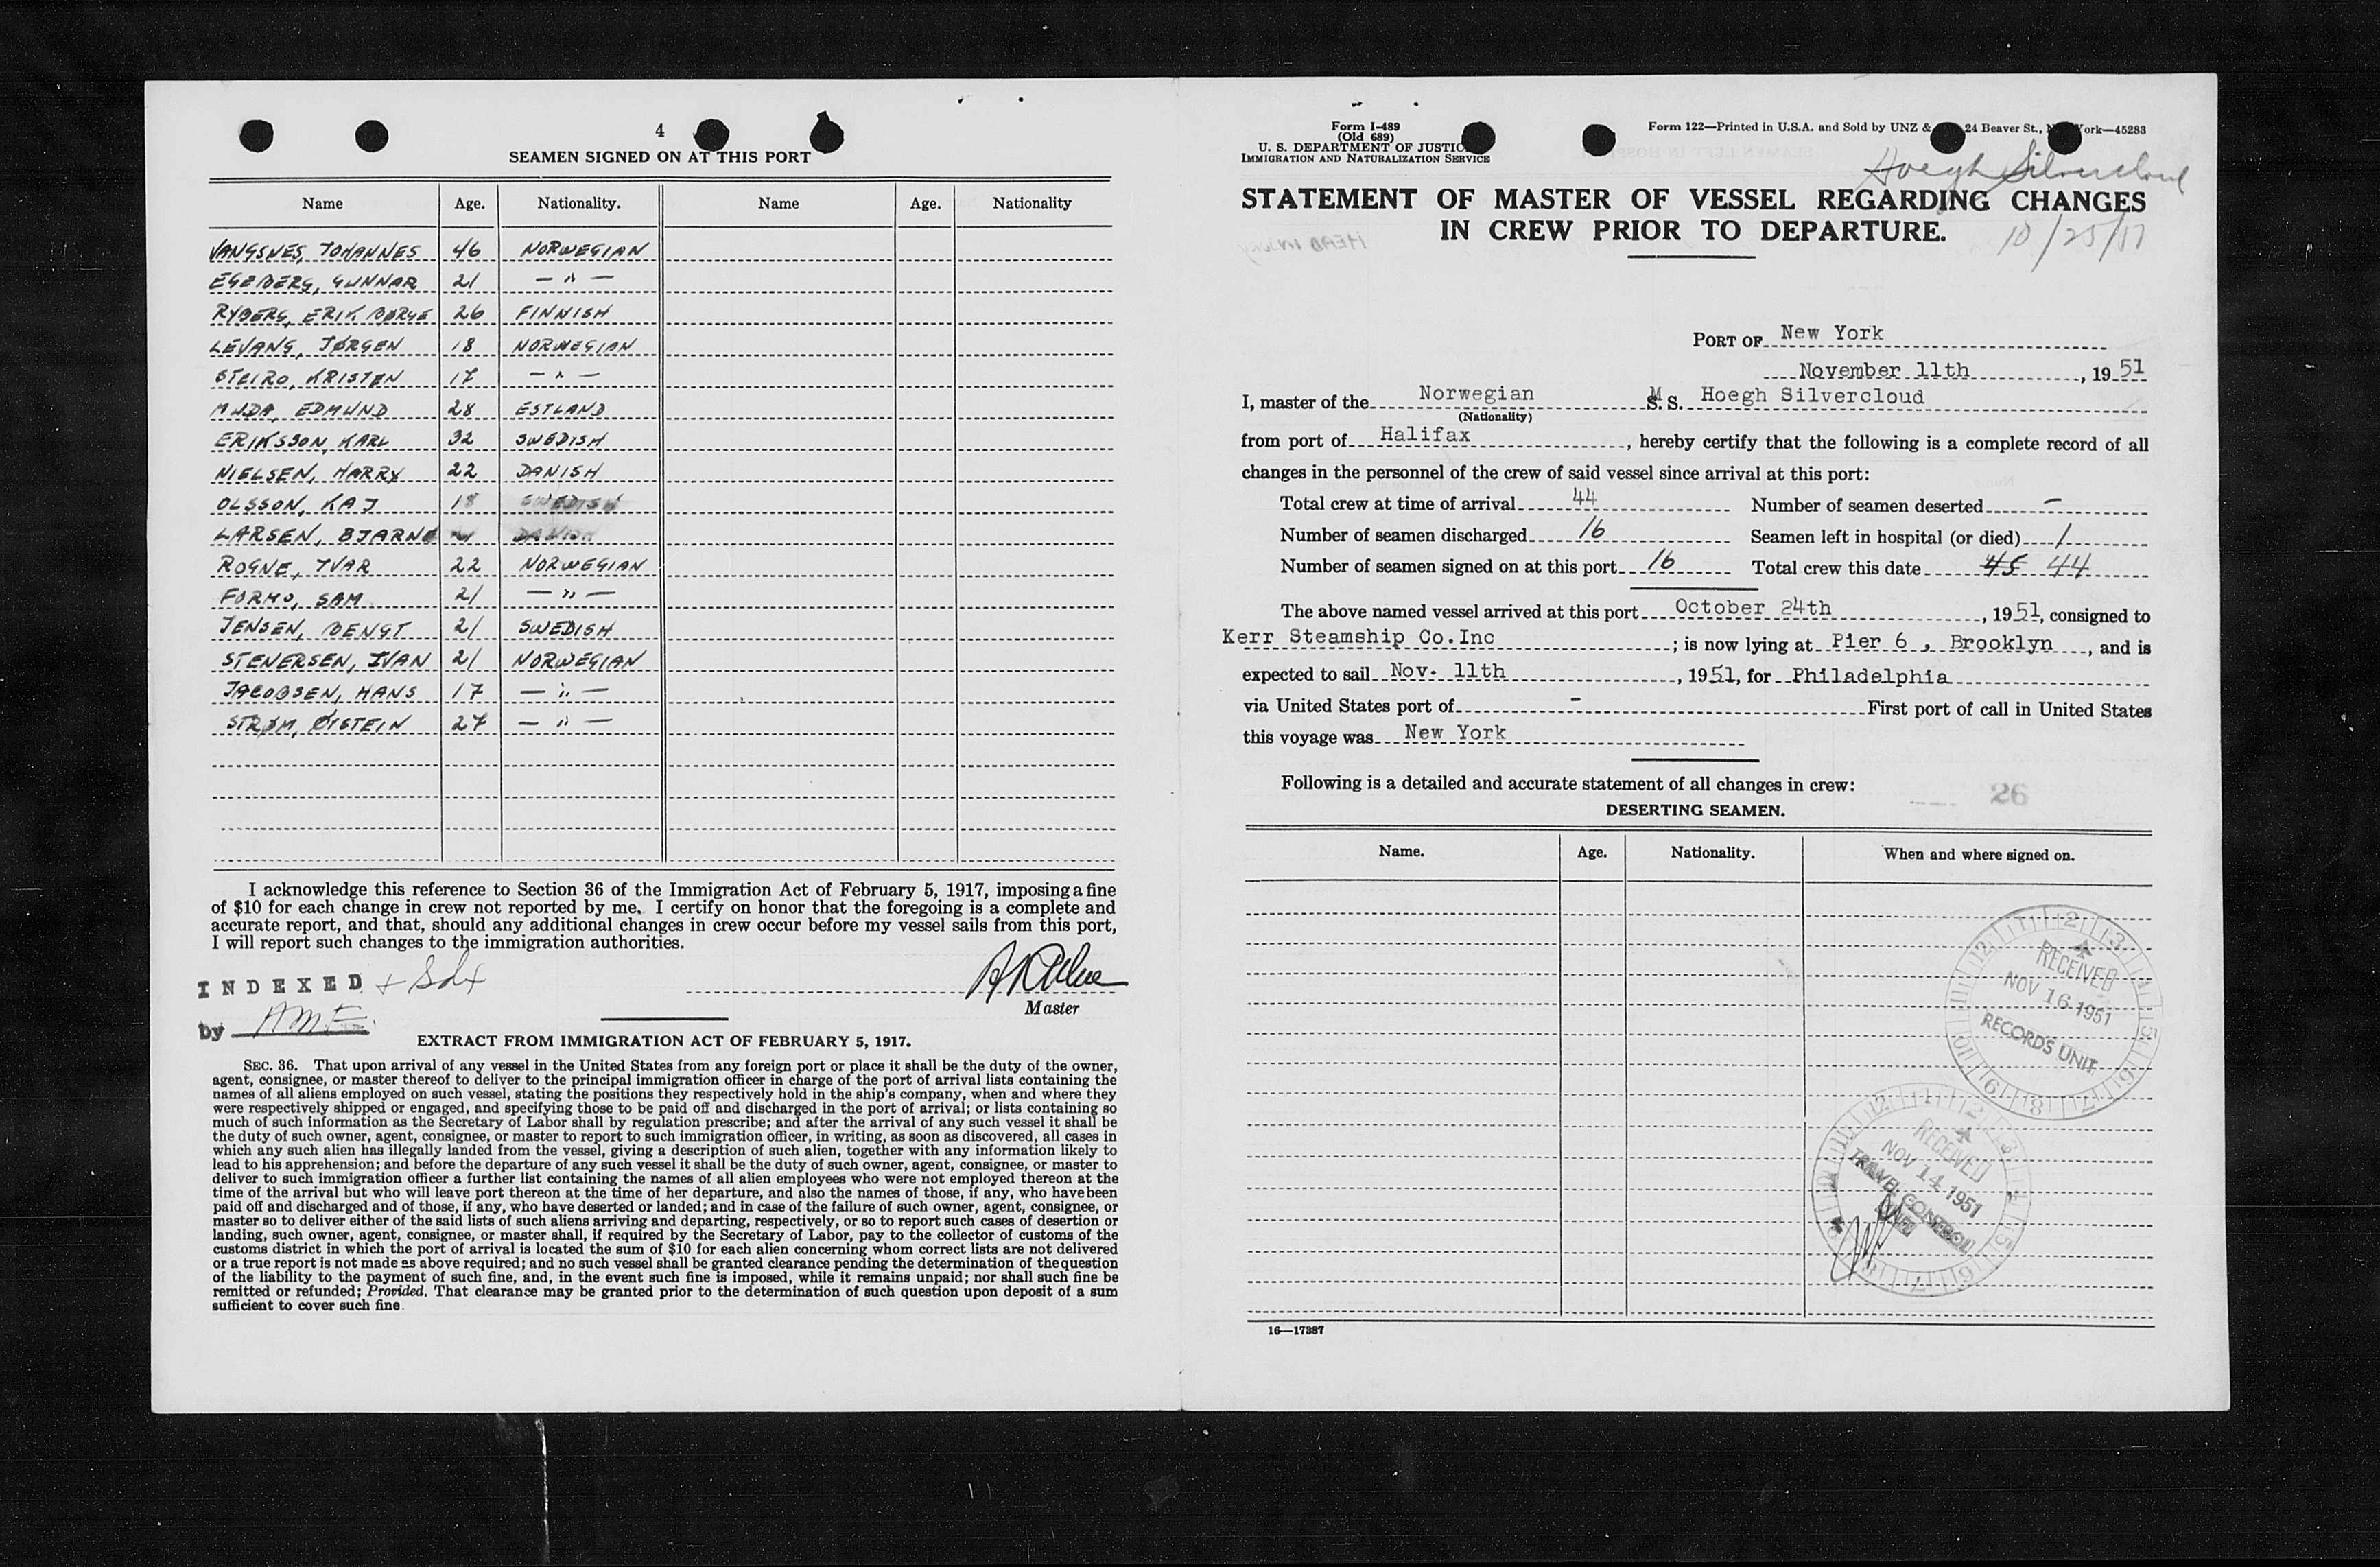 4
SEAMEN SIGNED ON AT THIS PORT
Name Age. Nationality. Name Age. Nationality
VANGSNES, JOHANNES 46 NORWEGIAN
EGEBERG, GUNNAR 21 — " —
RYBERG, ERIK BØRGE 26 FINNISH
LEVANG, JØRGEN 18 NORWEGIAN
STEIRO, KRISTEN 17 — " —
EDMUND 28 ESTLAND
ERIKSSON, KARL 32 SWEDISH
NIELSEN, HARRY 22 DANISH
OLSSON, KAJ 18 SWEDISH
LARSEN, BJARNE DANISH
ROGNE, IVAR 22 NORWEGIAN
FORMO, SAM 21 — " —
JENSEN, BENGT 21 SWEDISH
STENERSEN, IVAN 21 NORWEGIAN
JACOBSEN, HANS 17 — " —
STRØM, ØISTEIN 27 — " —
I acknowledge this reference to Section 36 of the Immigration Act of February 5, 1917, imposing a fine
of $10 for each change in crew not reported by me. I certify on honor that the foregoing is a complete and
accurate report, and that, should any additional changes in crew occur before my vessel sails from this port,
I will report such changes to the immigration authorities.
INDEXED
Master
by AME
EXTRACT FROM IMMIGRATION ACT OF FEBRUARY 5, 1917.
SEC. 36. That upon arrival of any vessel in the United States from any foreign port or place it shall be the duty of the owner,
agent, consignee, or master thereof to deliver to the principal immigration officer in charge of the port of arrival lists containing the
names of all aliens employed on such vessel, stating the positions they respectively hold in the ship's company, when and where they
were respectively shipped or engaged, and specifying those to be paid off and discharged in the port of arrival; or lists containing so
much of such information as the Secretary of Labor shall by regulation prescribe; and after the arrival of any such vessel it shall be
the duty of such owner, agent, consignee, or master to report to such immigration officer, in writing, as soon as discovered, all cases in
which any such alien has illegally landed from the vessel, giving a description of such alien, together with any information likely to
lead to his apprehension; and before the departure of any such vessel it shall be the duty of such owner, agent, consignee, or master to
deliver to such immigration officer a further list containing the names of all alien employees who were not employed thereon at the
time of the arrival but who will leave port thereon at the time of her departure, and also the names of those, if any, who have been
paid off and discharged and of those, if any, who have deserted or landed; and in case of the failure of such owner, agent, consignee, or
master so to deliver either of the said lists of such aliens arriving and departing, respectively, or so to report such cases of desertion or
landing, such owner, agent, consignee, or master shall, if required by the Secretary of Labor, pay to the collector of customs of the
customs district in which the port of arrival is located the sum of $10 for each alien concerning whom correct lists are not delivered
or a true report is not made as above required; and no such vessel shall be granted clearance pending the determination of the question
of the liability to the payment of such fine, and, in the event such fine is imposed, while it remains unpaid; nor shall such fine be
remitted or refunded; Provided, That clearance may be granted prior to the determination of such question upon deposit of a sum
sufficient to cover such fine.
Form I-489
(Old 689)
U. S. DEPARTMENT OF JUSTIC
IMMIGRATION AND NATURALIZATION SERVICE
Form 122—Printed in U.S.A. and Sold by UNZ & 24 Beaver St., N ork—45283
Hoegh Silvercloud
STATEMENT OF MASTER OF VESSEL REGARDING CHANGES
IN CREW PRIOR TO DEPARTURE.
10/25/51
PORT OF New York
November 11th, 1951
I, master of the Norwegian M S. S. Hoegh Silvercloud
(Nationality)
from port of Halifax, hereby certify that the following is a complete record of all
changes in the personnel of the crew of said vessel since arrival at this port:
Total crew at time of arrival 44 Number of seamen deserted -
Number of seamen discharged 16 Seamen left in hospital (or died) 1
Number of seamen signed on at this port 16 Total crew this date 45 44
The above named vessel arrived at this port October 24th, 1951, consigned to
Kerr Steamship Co.Inc; is now lying at Pier 6, Brooklyn, and is
expected to sail Nov. 11th, 1951, for Philadelphia
via United States port of - First port of call in United States
this voyage was New York
Following is a detailed and accurate statement of all changes in crew:
26
DESERTING SEAMEN.
Name. Age. Nationality. When and where signed on.
RECEIVED
NOV 16 1951
RECORDS UNIT
RECEIVED
NOV 14 1951
TRAVEL CONTROL
UNIT
16—17387